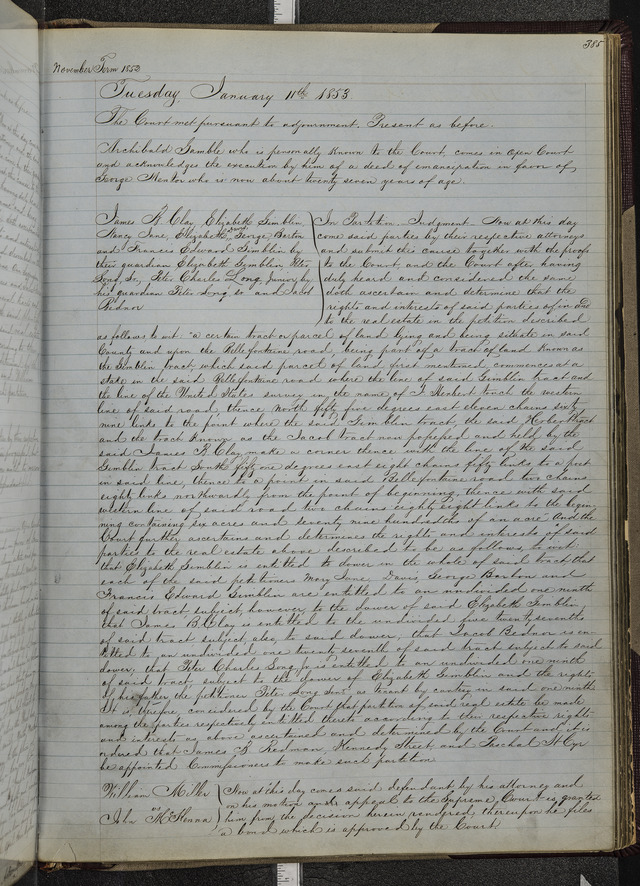 385
November Term 1852
Tuesday, January 11th 1853.
The Court met pursuant to adjournment. Present as before.
Archibald Gamble who is personally known to the Court, comes in open Court
and acknowledges the execution by him of a deed of emancipation in favor of
George Mentor who is now about twenty seven years of age.
James B. Clay, Elizabeth Gemblin,
Mary Jane, Elizabeth George Barton
and Francis Edward Gemblin by
their guardian Elizabeth Gemblin, Peter
Long Sr, Peter Charles Long, Junior by
his guardian Peter Long Sr and Jacob
Bednor
In Partition. Judgment. Now at this day
come said parties by their respective attorneys
and submit this cause together with the proofs
to the Court, and the Court after having
duly heard and considered the same
doth ascertain and determine that the
rights and interests of said parties of in and
to the real estate in the petition described
as follows to wit: "a certain tract or parcel of land lying and being situate in said
County and upon the Bellefontaine road, being part of a tract of land known as
the Gemblin tract, which said parcel of land first mentioned, commences at a
stake in the said Bellefontaine road where the line of said Gemblin tract and
the line of the United States survey in the name of J. touch the western
line of said road, thence North fifty five degrees east eleven chains sixty
nine links to the point where the said Gemblin tract, the said tract
and the tract known as the Jacob tract now possessed and held by the
said James B. Clay make a corner thence with the line of the said
Gemblin tract South fifty one degrees east eight chains fifty links to a post
in said line, thence to a point in said Bellefontaine road two chains
eighty links northwardly from the point of beginning, thence with said
western line of said road two chains eighty eight links to the begin-
ning containing six acres and seventy nine hundredths of an acre" And the
Court further ascertains and determines the rights and interests of said
parties to the real estate above described to be as follows, to wit:
that Elizabeth Gemblin is entitled to dower in the whole of said tract that
each of the said petitioners Mary Jane Davis, George Barton and
Francis Edward Gemblin are entitled to an undivided one ninth
of said tract subject, however, to the dower of said Elizabeth Gemblin
that James B. Clay is entitled to the undivided five twenty sevenths
of said tract subject also, to said dower, that Jacob Bednor is en-
titled to an undivided one twenty seventh of said tract subject to said
dower, that Peter Charles Long, Jr. is entitled to an undivided one ninth
of said tract, subject to the dower of Elizabeth Gemblin and the rights
of his father the petitioner Peter Long Senr as tenant by curtesy in said one ninth
It is, therefore, considered by the Court that partition of said real estate be made
among the parties respectively entitled thereto according to their respective rights
and interests as above ascertained and determined by the Court and it is
ordered that James B Redman, Kennedy Street and Paschal St Cyr
be appointed Commissioners to make such partition
William Miller
vs
John McKenna
Now at this day comes said defendant, by his attorney and
on his motion an appeal to the Supreme Court is granted
him from the decision herein rendered, thereupon he files
a bond which is approved by the Court